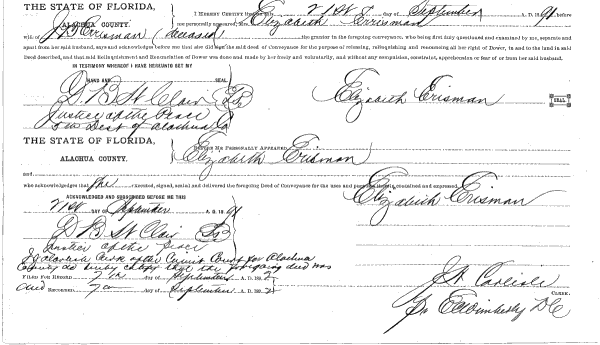 THE STATE OF FLORIDA,
I HEREBY CERTIFY 21st day of September A. D. 1891, before
ALACHUA COUNTY. me personally appeared Elizabeth Errisman
wife of J. Errisman (deceased) the grantor in the foregoing conveyance, who being first duly questioned and examined by me, separate and
apart from her said husband, says and acknowledges before me that she did the said deed of Conveyance for the purpose of releasing, relinquishing and renouncing all her right of Dower, in and to the land in said
Deed described, and that said Relinquishment and Renunciation of Dower was done and made by her freely and voluntarily, and without any compulsion, constraint, apprehension or fear of or from her said husband.
IN TESTIMONY WHEREOF I HAVE HEREUNTO SET MY
HAND AND SEAL
D. B. St Clair Elizabeth Erisman SEAL
Justice of the Peace
Dist of Alachua Co
THE STATE OF FLORIDA,
BEFORE ME PERSONALLY APPEARED
ALACHUA COUNTY. Elizabeth Erisman
and
who acknowledges that she executed, signed, sealed and delivered the foregoing Deed of Conveyance for the uses and purposes therein contained and expressed.
ACKNOWLEDGED AND SUBSCRIBED BEFORE ME THIS Elizabeth Erisman
21st DAY OF September A. D. 1891
D. B. St Clair
Justice of the Peace
Clerk of the Circuit Court for Alachua
County do hereby certify that the foregoing deed was
FILED FOR RECORD 7th day of September A. D. 189
J. H. Carlisle
and RECORDED 7th day of September A. D. 189 CLERK.
E. Wimberly DC